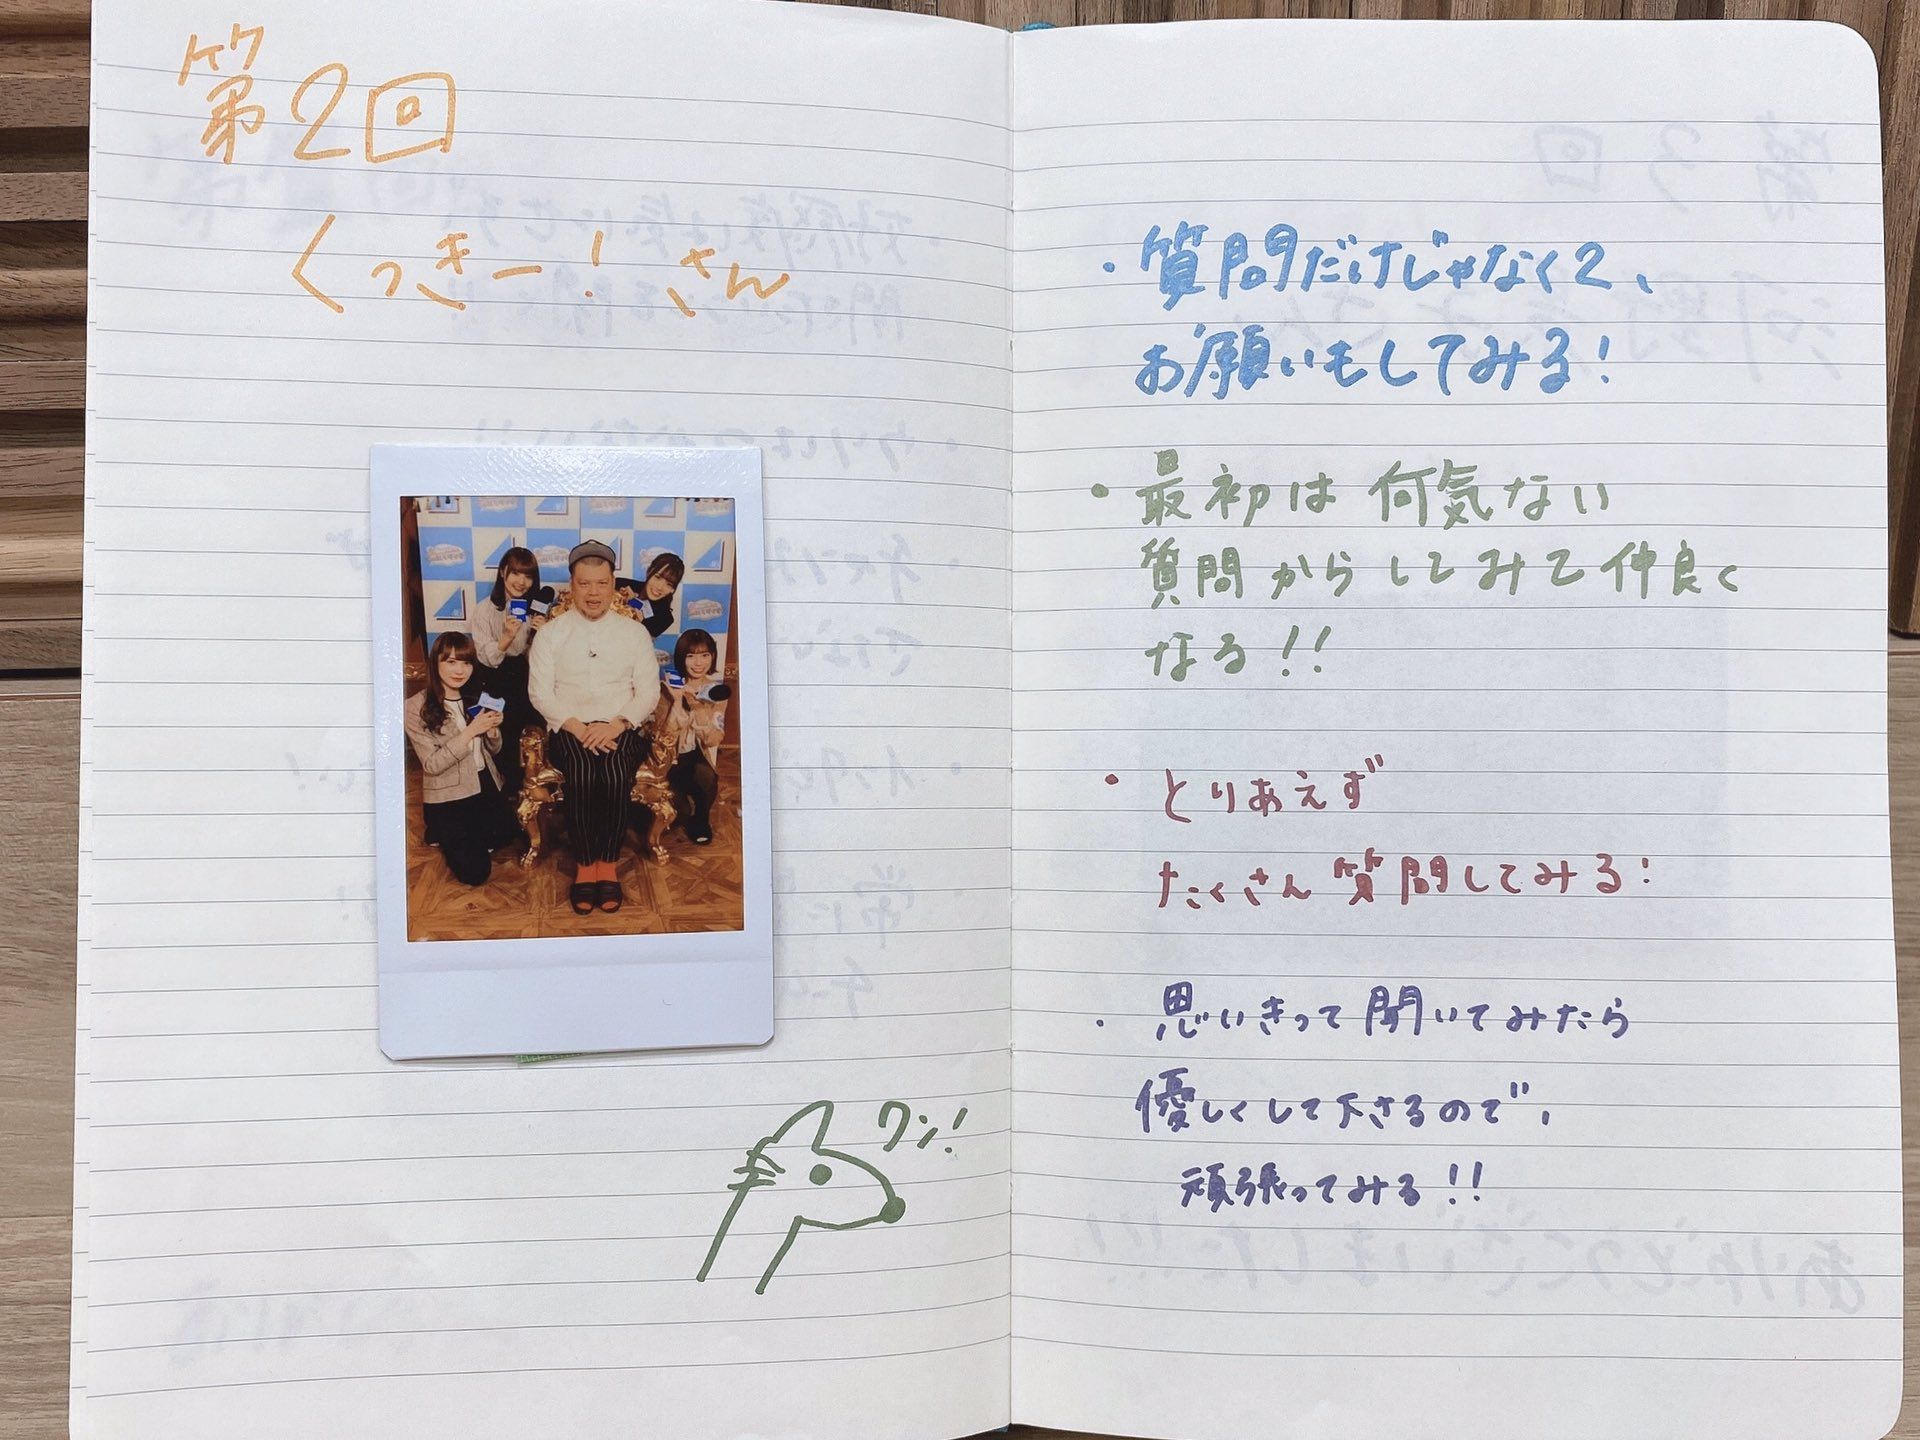 第2回
くっきー!さん
ワン!
・質問だけじゃなくて、
お願いもしてみる!
・最初は何気ない
質問からしてみて仲良く
なる!!
・とりあえず
たくさん質問してみる!
・思いきって聞いてみたら
優しくして下さるので、
頑張ってみる!!